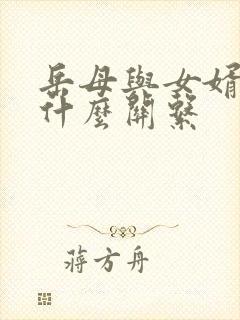 岳母與女婿
什麼關繫
蔣方舟